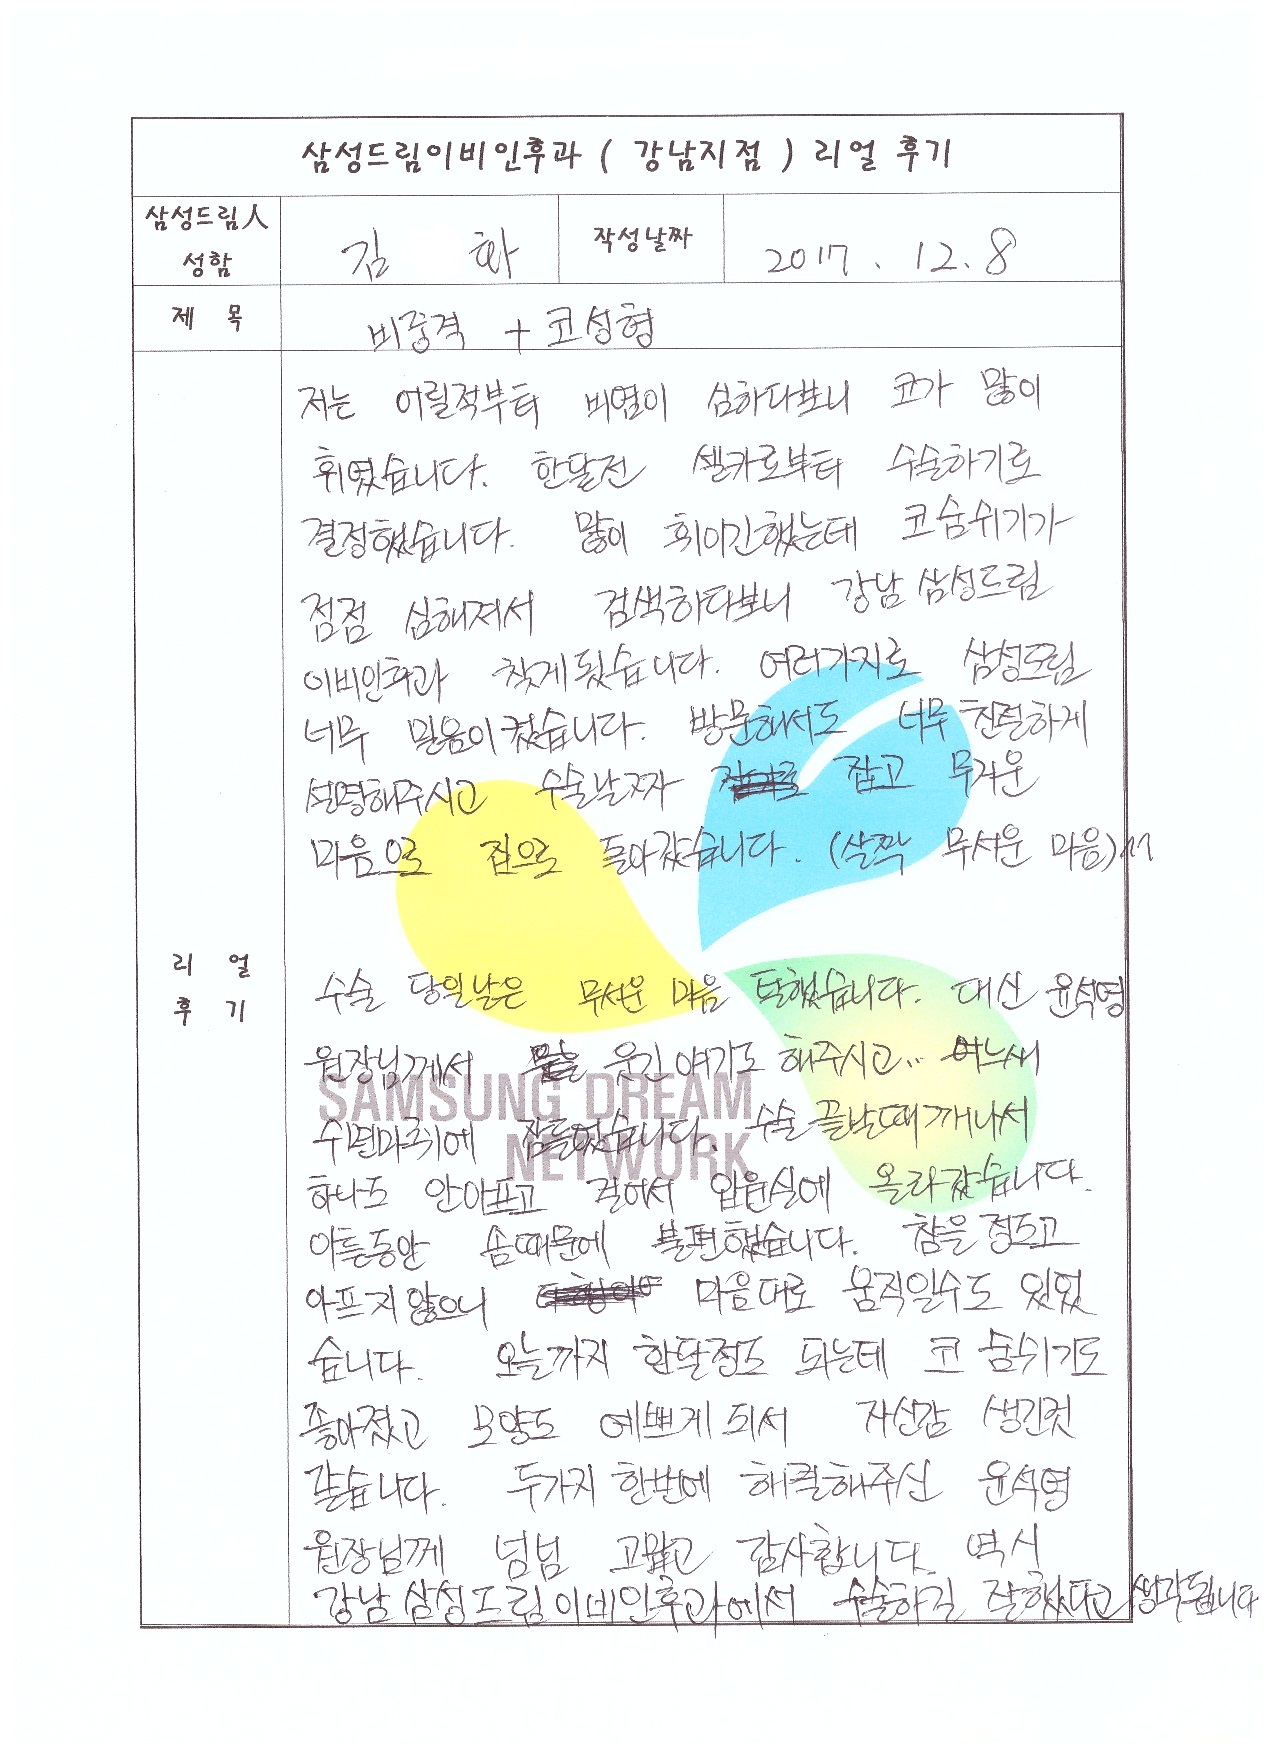 삼성드림이비인후과 ( 강남지점 ) 리얼 후기
삼성드림人
성함
김 화
작성날짜
2017. 12. 8
제 목
비중격 + 코성형
리 얼
후 기
저는 어릴적부터 비염이 심하다보니 코가 많이
휘였습니다. 한달전 셀카로부터 수술하기로
결정했습니다. 많이 휘이긴했는데 코숨쉬기가
점점 심해져서 검색하다보니 강남 삼성드림
이비인후과 찾게됬습니다. 여러가지로 삼성드림
너무 믿음이 컸습니다. 방문해서도 너무 친절하게
설명해주시고 수술날짜 잡고 무거운
마음으로 집으로 돌아갔습니다. (살짝 무서운 마음)
수술 당일날은 무서운 마음 탁했습니다. 대신 윤석영
원장님께서 웃긴 얘기도 해주시고.. 어느새
수면마취에 잠들었습니다. 수술 끝날때 깨나서
하나도 안아프고 걸어서 입원실에 올라갔습니다.
이틀동안 솜때문에 불편했습니다. 참을 정도고
아프지 않으니 마음대로 움직일수도 있었
습니다. 오늘까지 한달정도 되는데 코 숨쉬기도
좋아졌고 모양도 예쁘게 되서 자신감 생긴것
같습니다. 두가지 한번에 해결해주신 윤석영
원장님께 넘넘 고맙고 감사합니다. 역시
강남 삼성드림이비인후과에서 수술하길 잘했다고 생각됩니다
SAMSUNG DREAM
NETWORK